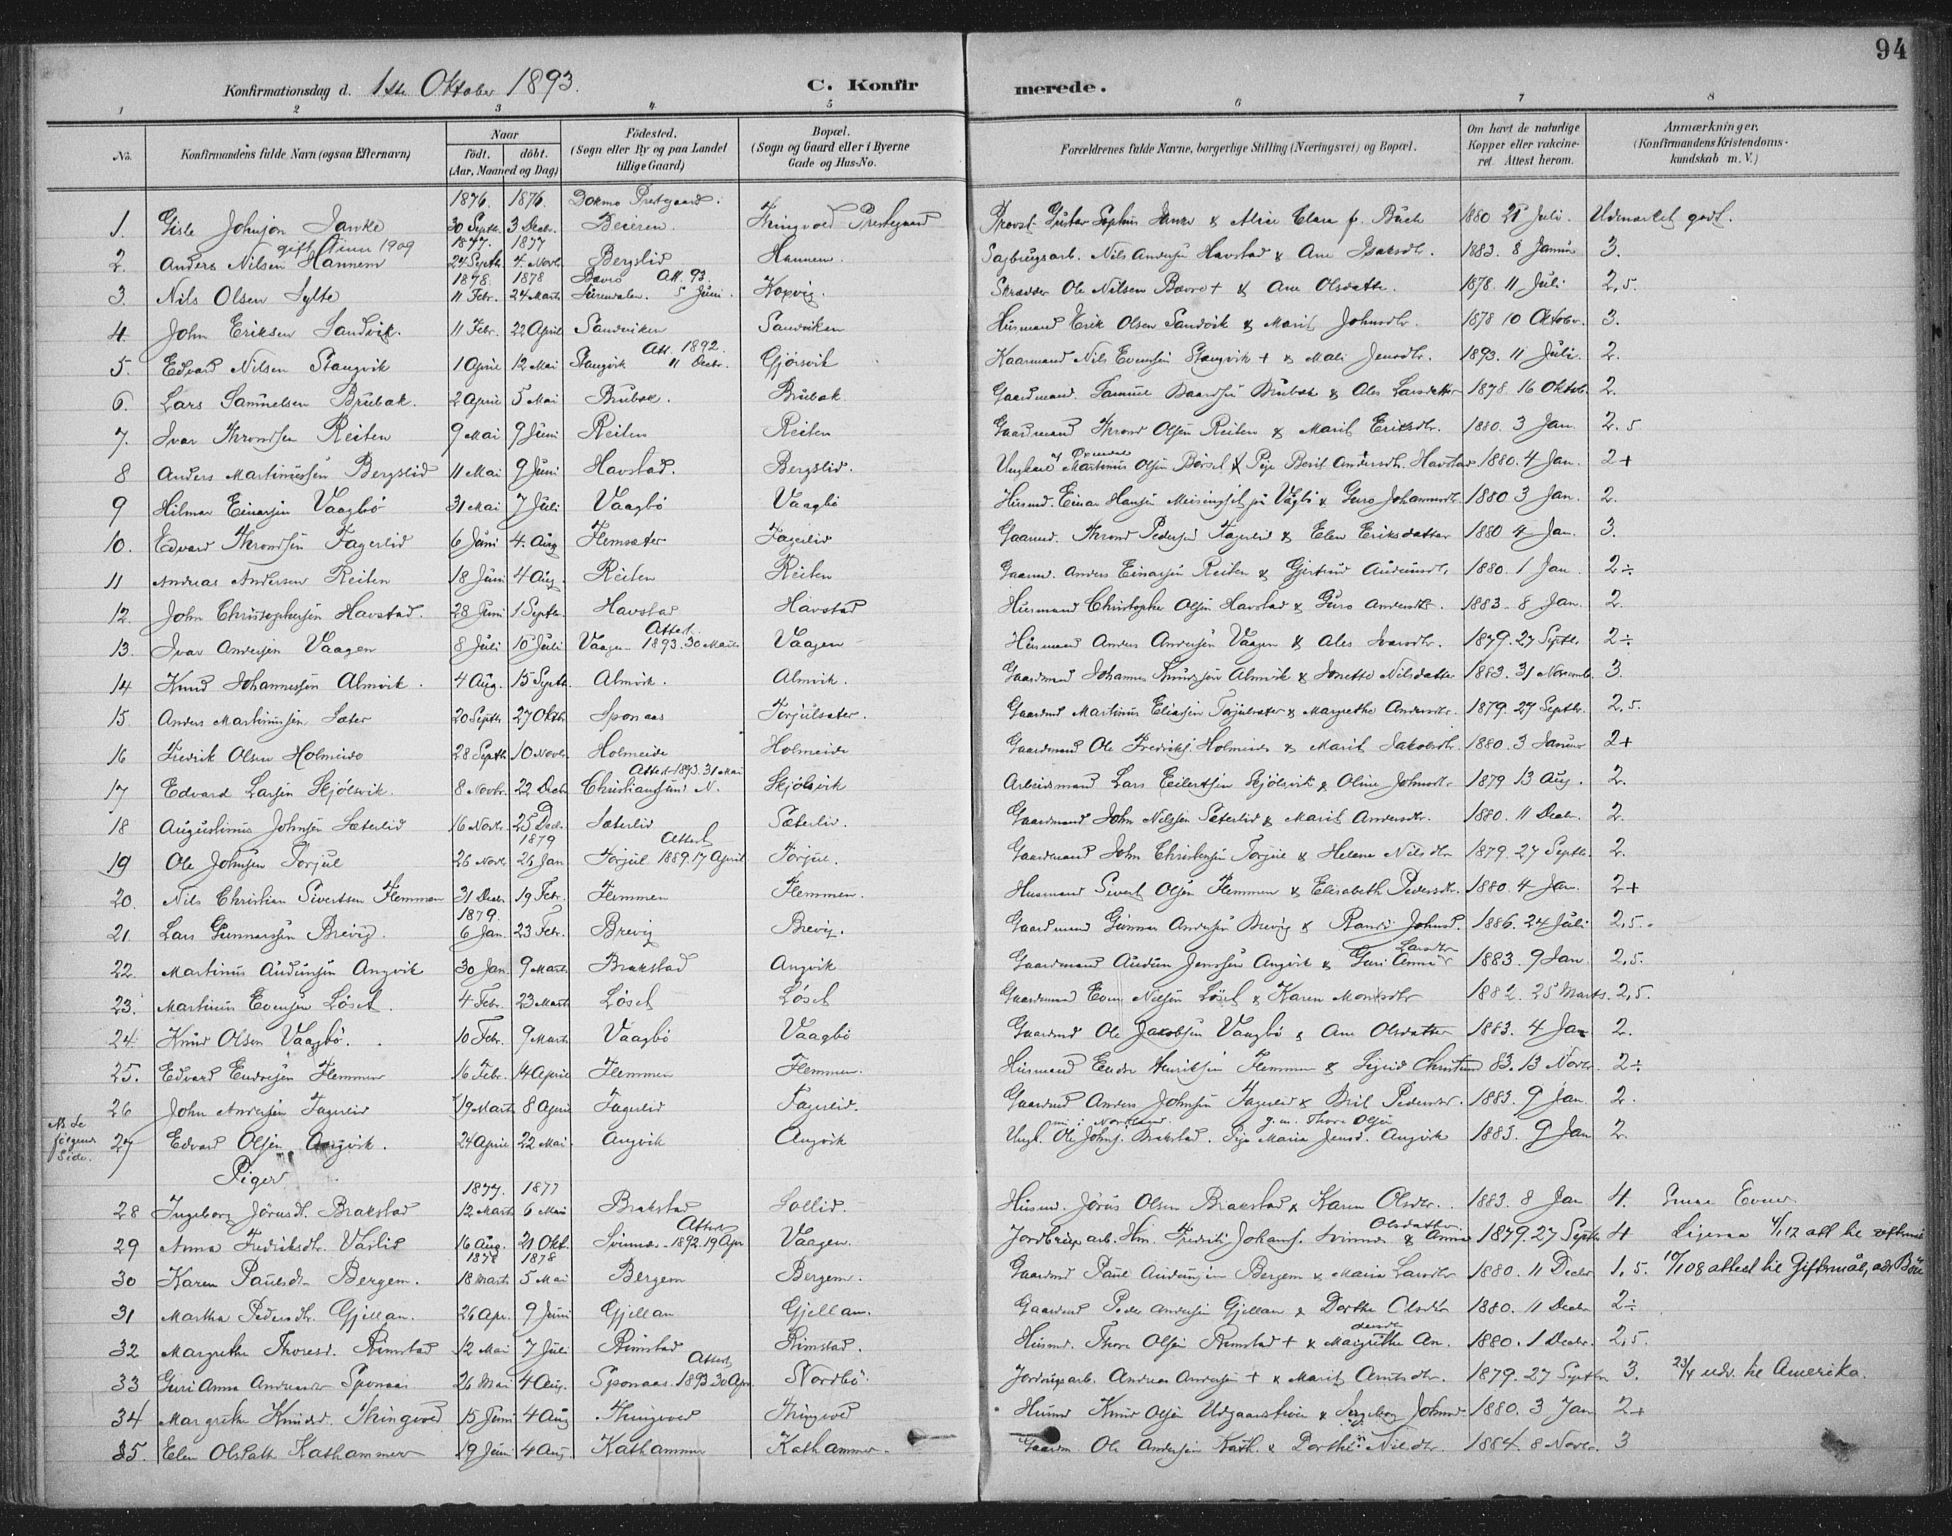 94
Konfirmationsdag d. 1ste Oktober 1893. C. Konfirmerede.
1 2 3 4 5 6 7 8
No. Konfirmandens fulde Navn (ogsaa Efternavn) Naar födt. döbt. (Aar, Maaned og Dag) Födested. (Sogn eller By og paa Landet tillige Gaard) Bopæl. (Sogn og Gaard eller i Byerne Gade og Hus-No. Forældrenes fulde Navne, borgerlige Stilling (Næringsvei) og Bopæl. Om havt de naturlige Kopper eller vakcineret. Attest herom. Anmærkninger. (Konfirmandens Kristendomskundskab m. V.)
1876. 1876. Prestgaard.
1. Gisle Johnson 30 Septbr. 3 Decbr. Beieren. Thingvold Prestegaard Provst Gustav Sophus & Alice Clara f. 1880 Juli. Udmærket godt.
gift 1909 1877. 1877
2. Anders Nilsen Hannem 24 Septbr. 4 Novbr. Bergslid Hannem. Sagbrugsarb. Nils Andersen Havstad & Ane Isaksdtr. 1883. 8 Januar 3.
1878. 1878 Att. 93.
3. Nils Olsen Sylte 11 Febr. 24 Marts 5 Juni. Kopvig. Skrædder Ole Nilsen Bævre + & Ane Olsdatter. 1878. 11 Juli 2,5.
4. John Eriksen Sandvik. 11 Febr. 22 April Sandviken Sandviken Husmand Erik Olsen Sandvik & Marit Johnsdtr. 1878 10 Oktobr. 3.
Att. 1892.
5. Edvard Nilsen Stangvik 1 April 12 Mai Stangvik 11 Decbr. Gjørsvik Kaarmand Nils Evensen Stangvik + & Mali Jensdtr. 1893. 11 Juli. 2.
6. Lars Samuelsen Brubak. 2 April 5 Mai Brubak. Brubak Gaardmand. Samuel Baardsen Brubak & Ales Larsdatter 1878. 16 Oktob. 2.
7. Ivar Throndsen Reiten 9 Mai 9 Juni Reiten Reiten Gaardmand Thrond Olsen Reiten & Marit Eriksdtr. 1880. 3 Jan. 2.5
8 Anders Martinussen Bergslid 11 Mai 9 Juni Havstad. Bergslid. Ungkarl Martinus Olsen & Pige Berit Andersdtr. Havstad 1880. 4 Jan. 2+
9 Hilmar Einarsen Vaagbø 31 Mai 7 Juli Vaagbø Vaagbø Husmd. Einar Hansen Meisingset paa Vaagbø & Guro Johannesdtr. 1880 3 Jan. 2.
10. Edvard Throndsen Fagerlid 6 Juni 4. Aug Flemsæter Fagerlid Gaarmd. Thrond Pedersen Fagerlid & Elen Eriksdatter 1880 4 Jan. 3.
11 Andreas Andersen Reiten 18 Juni 4 Aug. Reiten Reiten Gaarmd. Anders Einarsen Reiten & Gjertrud Audunsdtr. 1880. 1 Jan. 2÷
12. John Christophersen Havstad. 28 Juni 1 Septbr. Havstad Havstad Husmand Christopher Olsen Havstad & Guro Andersdtr. 1883. 8 Jan. 2.
Attest.
13. Ivar Andersen Vaagen 8 Juli 10 Juli Vaagen 1893. 30 Marts Vaagen Husmand Anders Andersen Vaagen & Ales Ivarsdtr. 1879. 27 Septbr. 2÷
14 Knud Johannessen Almvik. 4 Aug. 15 Septb. Almvik. Almvik. Gaardmand Johannes Knudsen Almvik & Jonette Nilsdatter 1883. 31 Novemb. 3.
15. Anders Martinussen Sæter 20 Septbr 27 Oktbr. Sponaas Torjulsæter. Gaardmd Martinus Eliasen Torjulsæter & Margrethe Andersdtr. 1879. 27 Septbr. 2,5.
16 Fredrik Olsen Holmeide 28 Septb. 10 Novbr. Holmeide Holmeide Gaardmand Ole Fredriks. Holmeide & Marit Jakobsdtr. 1880. 3 Januar 2+
Attest 1893. 31 Mai
17 Edvard Larsen Skjølsvik. 8 Novbr. 22 Decbr Christianssund N. Skjølsvik Arbeidsmand Lars Eilertsen Skjølsvik & Oline Johnsdtr. 1879. 13 Aug. 2.
18 Augustinus Johnsen Sæterlid 16 Novbr. 25 Dec. Sæterlid Sæterlid. Gaardmand John Nilssen Sæterlid & Marit Andersdtr. 1880. 11 Decbr. 2.
1879 Attest
19 Ole Johnsen Torjul 26 Novbr 26 Jan Torjul 1889. 17 April Torjul. Gaardmand John Christensen Torjul & Helene Nilsdtr 1879. 27 Septbr. 2.
20. Nils Christian Sivertsen Flemmen 31 Decbr. 19 Febr. Flemmen Flemmen. Husmand Sivert Olsen Flemmen & Elisabeth Pedersdtr. 1880. 4 Jan. 2+
1879.
21. Lars Gunnarsen Brevig. 6 Jan. 23 Febr. Brevig Brevig. Gaardmand Gunnar Andersen Brevig & Randi Johnsd. 1886. 24 Juli 2,5.
22. Martinus Audunsen Angvik 30 Jan. 9 Marts Brakstad Angvik Gaardmand Audun Jenssen Angvik & Guri Anna Larsdtr 1883. 9 Jan 2,5.
23. Martinus Evensen Løset. 4 Febr. 23 Marts Løset Løset Gaardmand Even Nilsen Løset & Karen Monsdtr 1882. 25 Marts. 2,5.
24. Knud Olsen Vaagbø. 10 Febr. 9 Marts Vaagbø Vaagbø Gaardmd Ole Jakobsen Vaagbø & Ane Olsdatter 1883. 4 Jan 2.
25. Edvard Endresen Flemmen 16 Febr. 14 April Flemmen Flemmen. Husmand Endre Henriksen Flemmen & Sigrid 83. 13 Novbr. 2÷
26 John Andersen Fagerlid 19 Marts 8 April Fagerlid Fagerlid. Gaardmd Anders Johnsen Fagerlid & Brit Pedersdtr. 1883. 9 Jan. 2.
NB Se følgende Side.
nu i Nordland g. m. Thore Olsen
27 Edvard Olsen Angvik. 24 April 22 Mai Angvik Angvik Ungk. Ole Johns. Brakstad. Pige Maria Jensd. Angvik 1883. 9 Jan 2.
Piger
1877. 1877
28 Ingeborg Jørnsdt. Brakstad 12 Marts 6 Mai Brakstad Sollid. Husmd. Jørn Olsen Brakstad & Karen Olsdtr. 1883. 8 Jan 4. Evner
Attest
29 Anna Fredriksdtr. Vaslid 16 Aug. 21 Okt. Svinnes 1892. 19 Apr Vaagen. Jordbrugsarb. Hm. Fredrik Johans. Svinnes & Anna Olsdatter. 1879. 27 Septbr 4 Ligesaa 4/12 att til
1878 1878
30 Karen Paulsdtr Bergem. 18 Marts 5 Mai Bergem Bergem. Gaardmd Paul Audunsen Bergem & Maria Larsdtr 1880. 11 Decbr 1,5. 10/1 08 attest til Giftermål,
31 Martha Pedersdtr. Gjellan. 26 Apr. 9 Juni Gjellan Gjellan. Gaardmd Peder Andersen Gjellan & Dorthe Olsdtr 1880. 11 Decbr 2÷
32 Margrethe Thoresd. Rimstad 12 Mai 7 Juli Rimstad Rimstad. Husmd. Thore Olsen Rimstad + & Margrethe An. dersd. 1880. 1 Decbr. 2,5.
Attest
33 Guri Anna Andreasdtr Sponaas 26 Mai 4 Aug. Sponaas. 1893 30 Apr. Nordbø. Jordbrugsarb. Andreas Andersen + & Marit Arntsdtr. 1879. 27 Septbr 3. 23/4 udv. til Amerika.
34 Margrethe Knudsd. Thingvold 15 Juni 4 Aug Thingvold Thingvold Husmd Knud Olsen Udgaardstuen & Ingeborg Johnsd 1880. 3 Jan 2+
35. Elen Olsdatt. Kathammer 19 Juni 4 Aug. Kathammer Kathammer. Gaardm. Ole Andersen Kath. & Dorthe Nilsdtr. 1884. 8 Novbr. 3